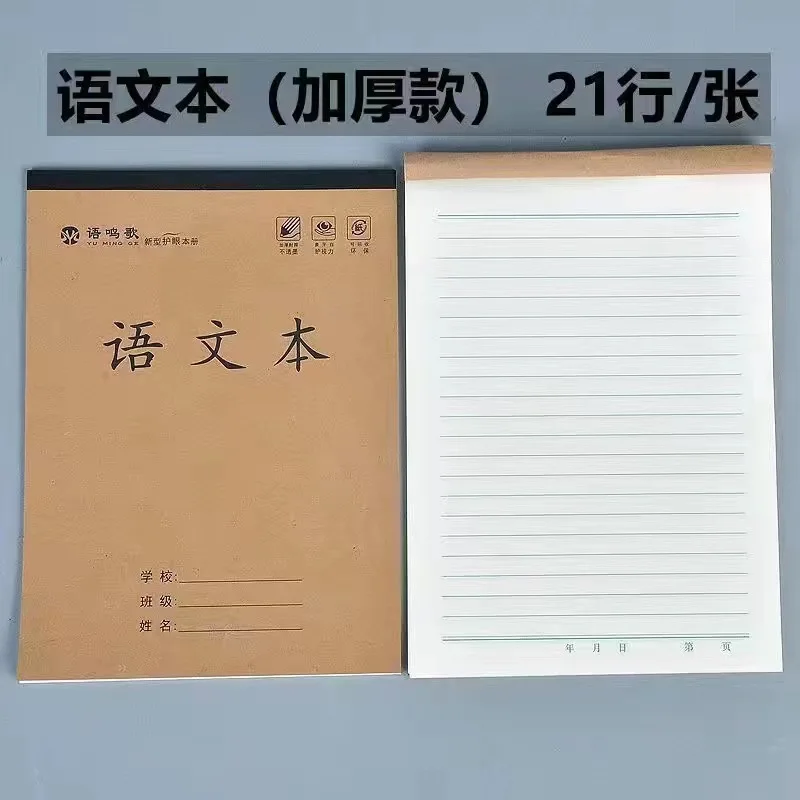 语文本（加厚款） 21行/张
语鸣歌
YU MING GE
新型护眼本册
不透墨
护视力
环保
语文本
学校:
班级:
姓名:
年 月 日 第 页